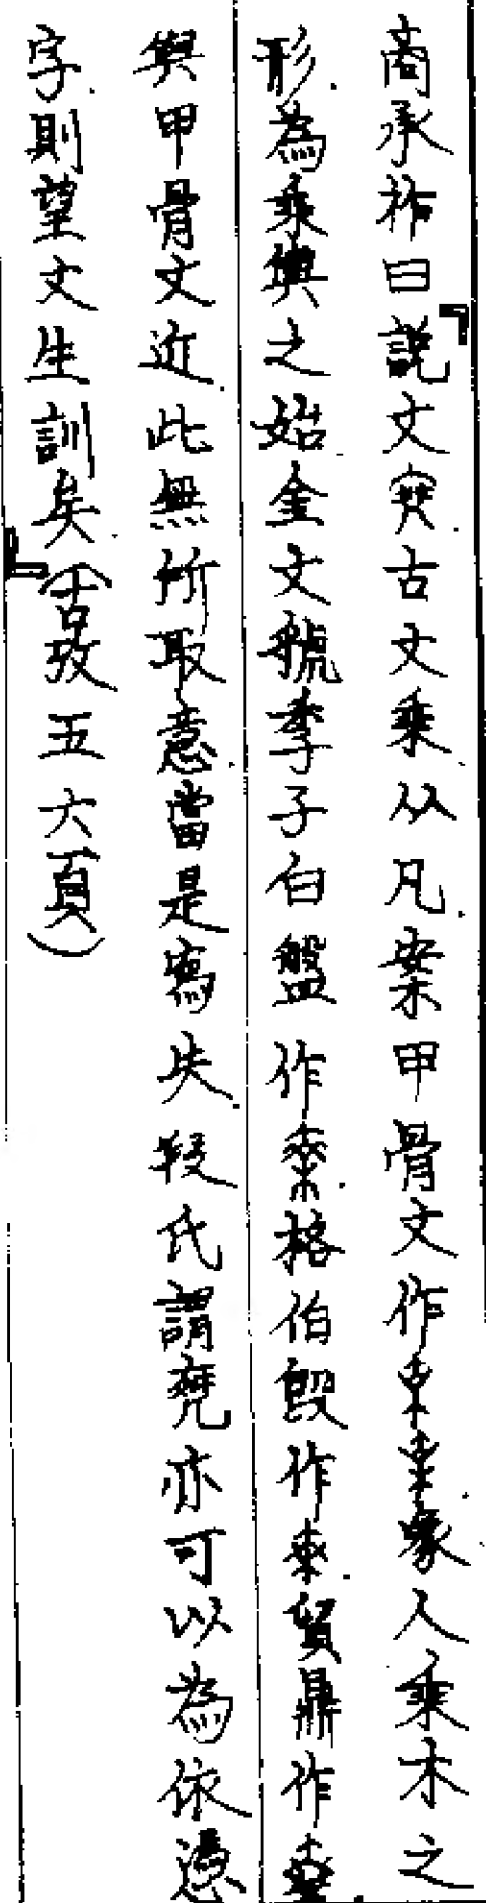 商承祚曰『說文𠅞古文乘从几案甲骨文作象人乘木之
形為乘輿之始金文虢季子白盤作格伯𣪘作貿鼎作
與甲骨文近此無所取意當是寫失段氏謂凳亦可以為依憑
字則望文生訓矣』(古攷五六頁)